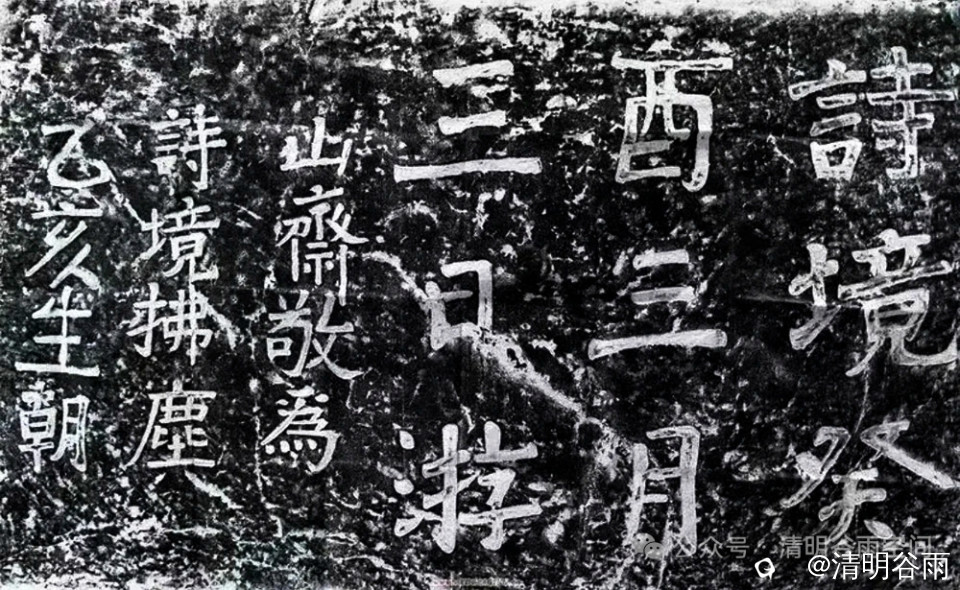 詩境癸
酉三月
三日游
山齋敬為
詩境拂塵
乙亥生朝
公众号 · 清明谷雨
@清明谷雨